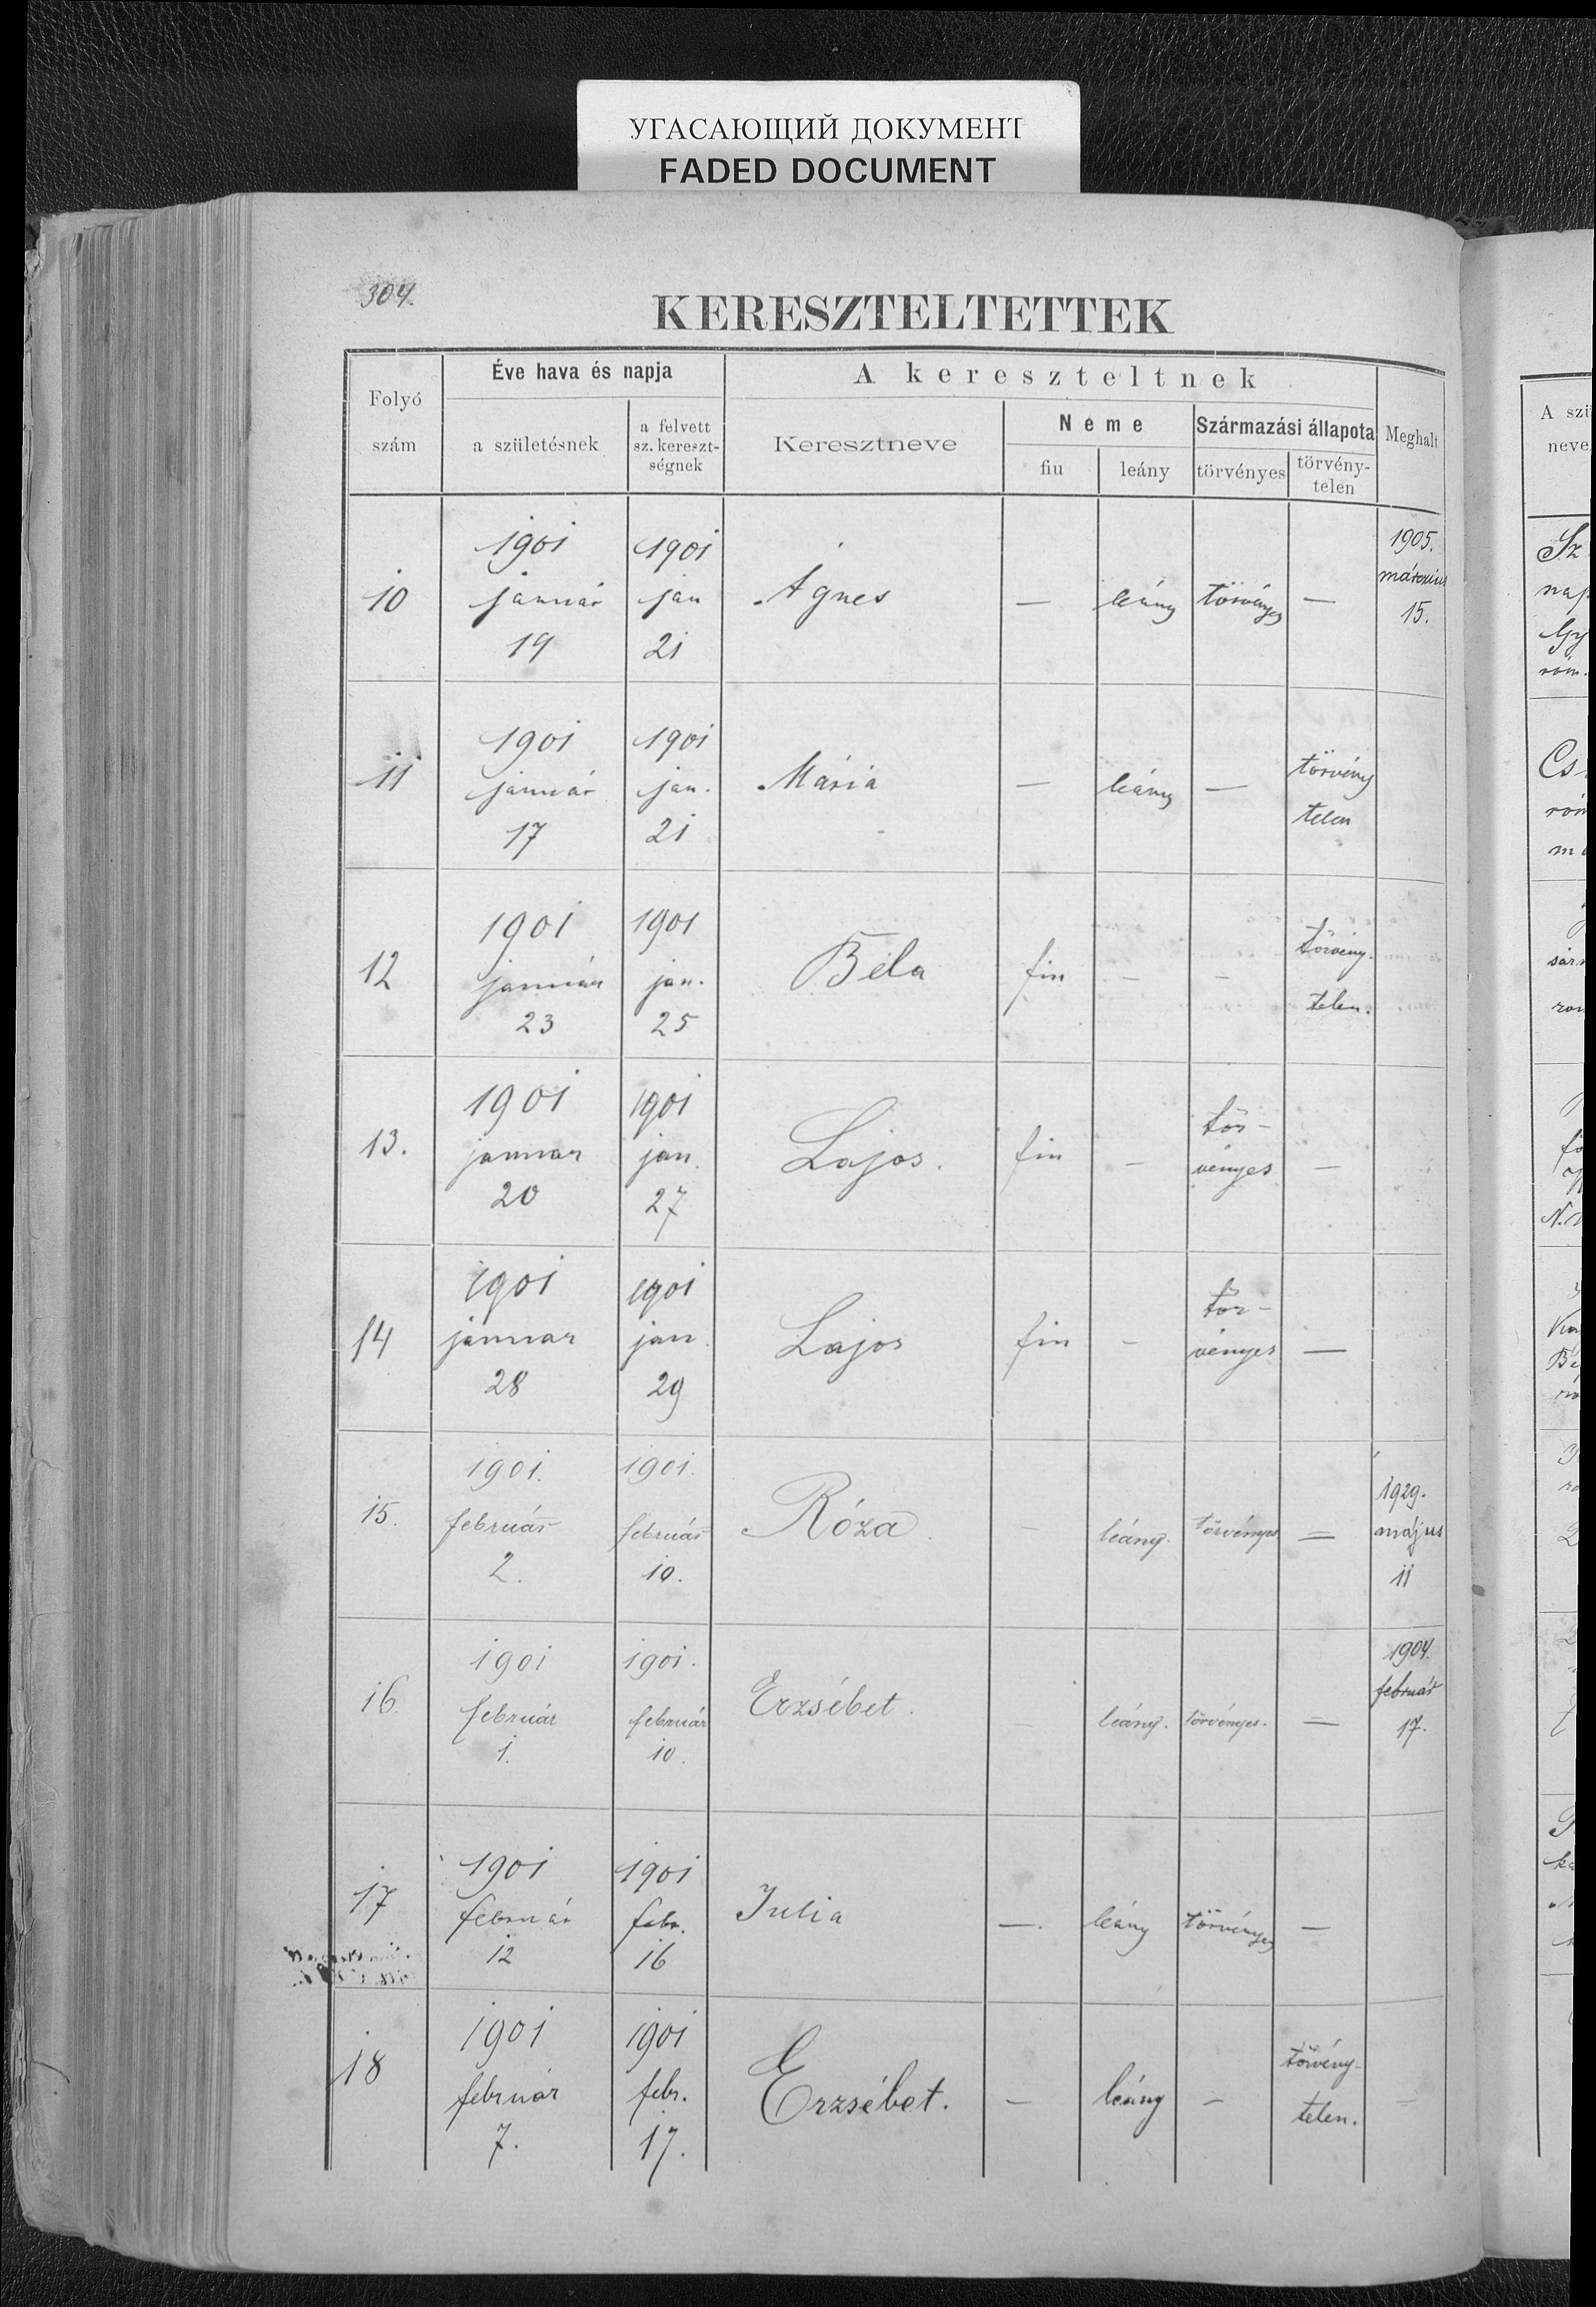 УГАСАЮЩИЙ ДОКУМЕНТ
FADED DOCUMENT
304.
KERESZTELTETTEK
Folyó szám
Éve hava és napja
a születésnek
a felvett sz. kereszt-ségnek
A kereszteltnek
Keresztneve
Neme
fiu
leány
Származási állapota
törvényes
törvény-telen
Meghalt
10
1901 január 19
1901 jan 21
Ágnes
—
leány
törvényes
—
1905. márczius 15.
11
1901 január 17
1901 jan. 21
Mária
—
leány
—
törvény telen
12
1901 január 23
1901 jan. 25
Béla
fiu
—
—
törvény. telen.
13.
1901 januar 20
1901 jan. 27
Lajos.
fiu
—
tör- vényes
—
14
1901 januar 28
1901 jan. 29
Lajos
fiu
—
tör- vényes
—
15.
1901. február 2.
1901. február 10.
Róza.
—
leány.
törvényes
=
1929. május 11
16.
1901 február 1.
1901. február 10.
Erzsébet.
—
leány.
törvényes.
=
1904. február 17.
17
1901 február 12
1901 febr. 16
Julia
—.
leány
törvényes
—
18
1901 február 7.
1901 febr. 17.
Erzsébet.
—
leány
—
törvény- telen.
—
A szü
neve